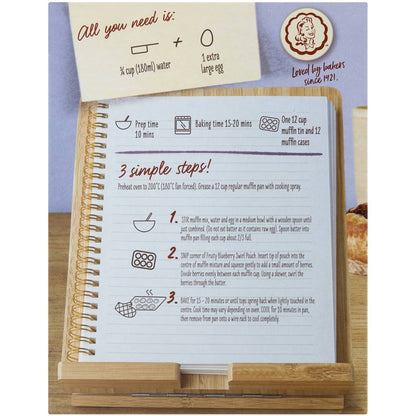 All you need is:
¾ cup (180ml) water
+
1 extra
large egg
Loved by bakers
since 1921.
Prep time
10 mins
Baking time 15-20 mins
One 12 cup
muffin tin and 12
muffin cases
3 simple steps!
Preheat oven to 200°C (180°C fan forced). Grease a 12 cup regular muffin pan with cooking spray.
1. STIR muffin mix, water and egg in a medium bowl with a wooden spoon until
just combined. (Do not eat batter as it contains raw egg). Spoon batter into
muffin pan filling each cup about 2/3 full.
2. SNIP corner of Fruity Blueberry Swirl Pouch. Insert tip of pouch into the
centre of muffin mixture and squeeze gently to add a small amount of berries.
Divide berries evenly between each muffin cup. Using a skewer, swirl the
berries through the batter.
3. BAKE for 15 - 20 minutes or until tops spring back when lightly touched in the
centre. Cook time may vary depending on oven. COOL for 10 minutes in pan,
then remove from pan onto a wire rack to cool completely.